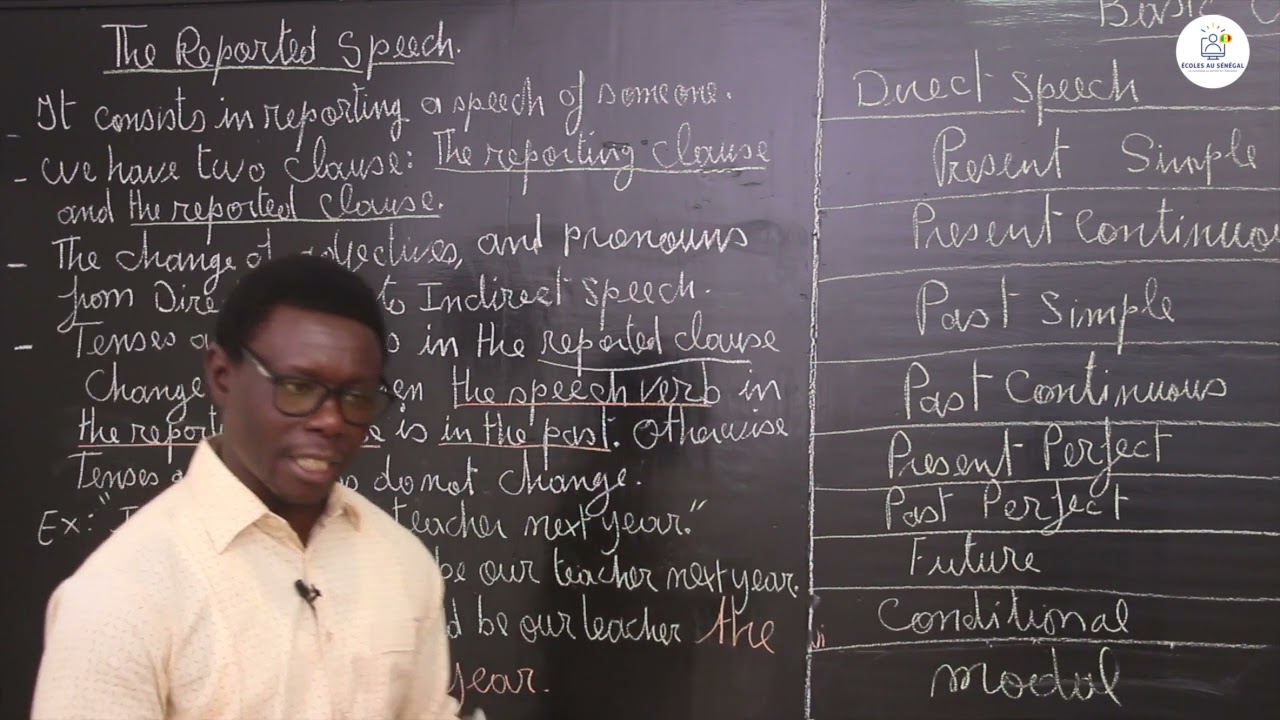 The Reported Speech.
- It consists in reporting a speech of someone.
- We have two clause: The reporting clause
and the reported clause.
- The change of adjectives, and pronouns
from to Indirect Speech.
- Tenses in the reported clause
Change the speech verb in
the is in the past. Otherwise
Tenses do not change.
Ex: " teacher next year."
be our teacher next year.
be our teacher the
year.
Basic
Direct Speech
Present Simple
Present
Past Simple
Past Continuous
Present Perfect
Past Perfect
Future
Conditional
Modal
ÉCOLES AU SÉNÉGAL